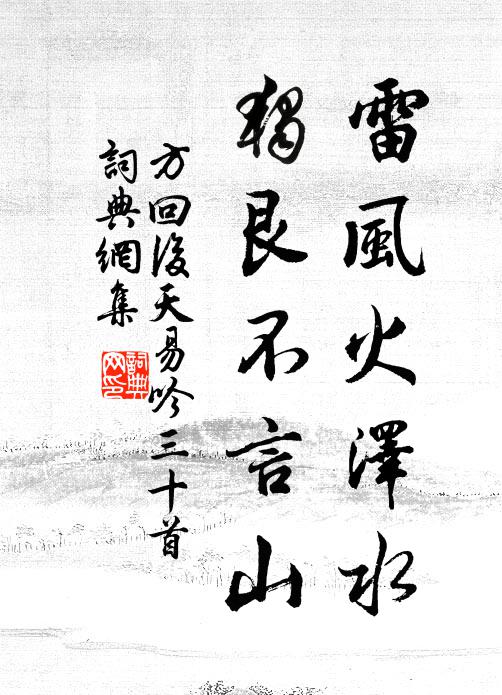 雷風火澤水
獨艮不言山
方回後天易吟三十首
詞典網集
詞典
网印